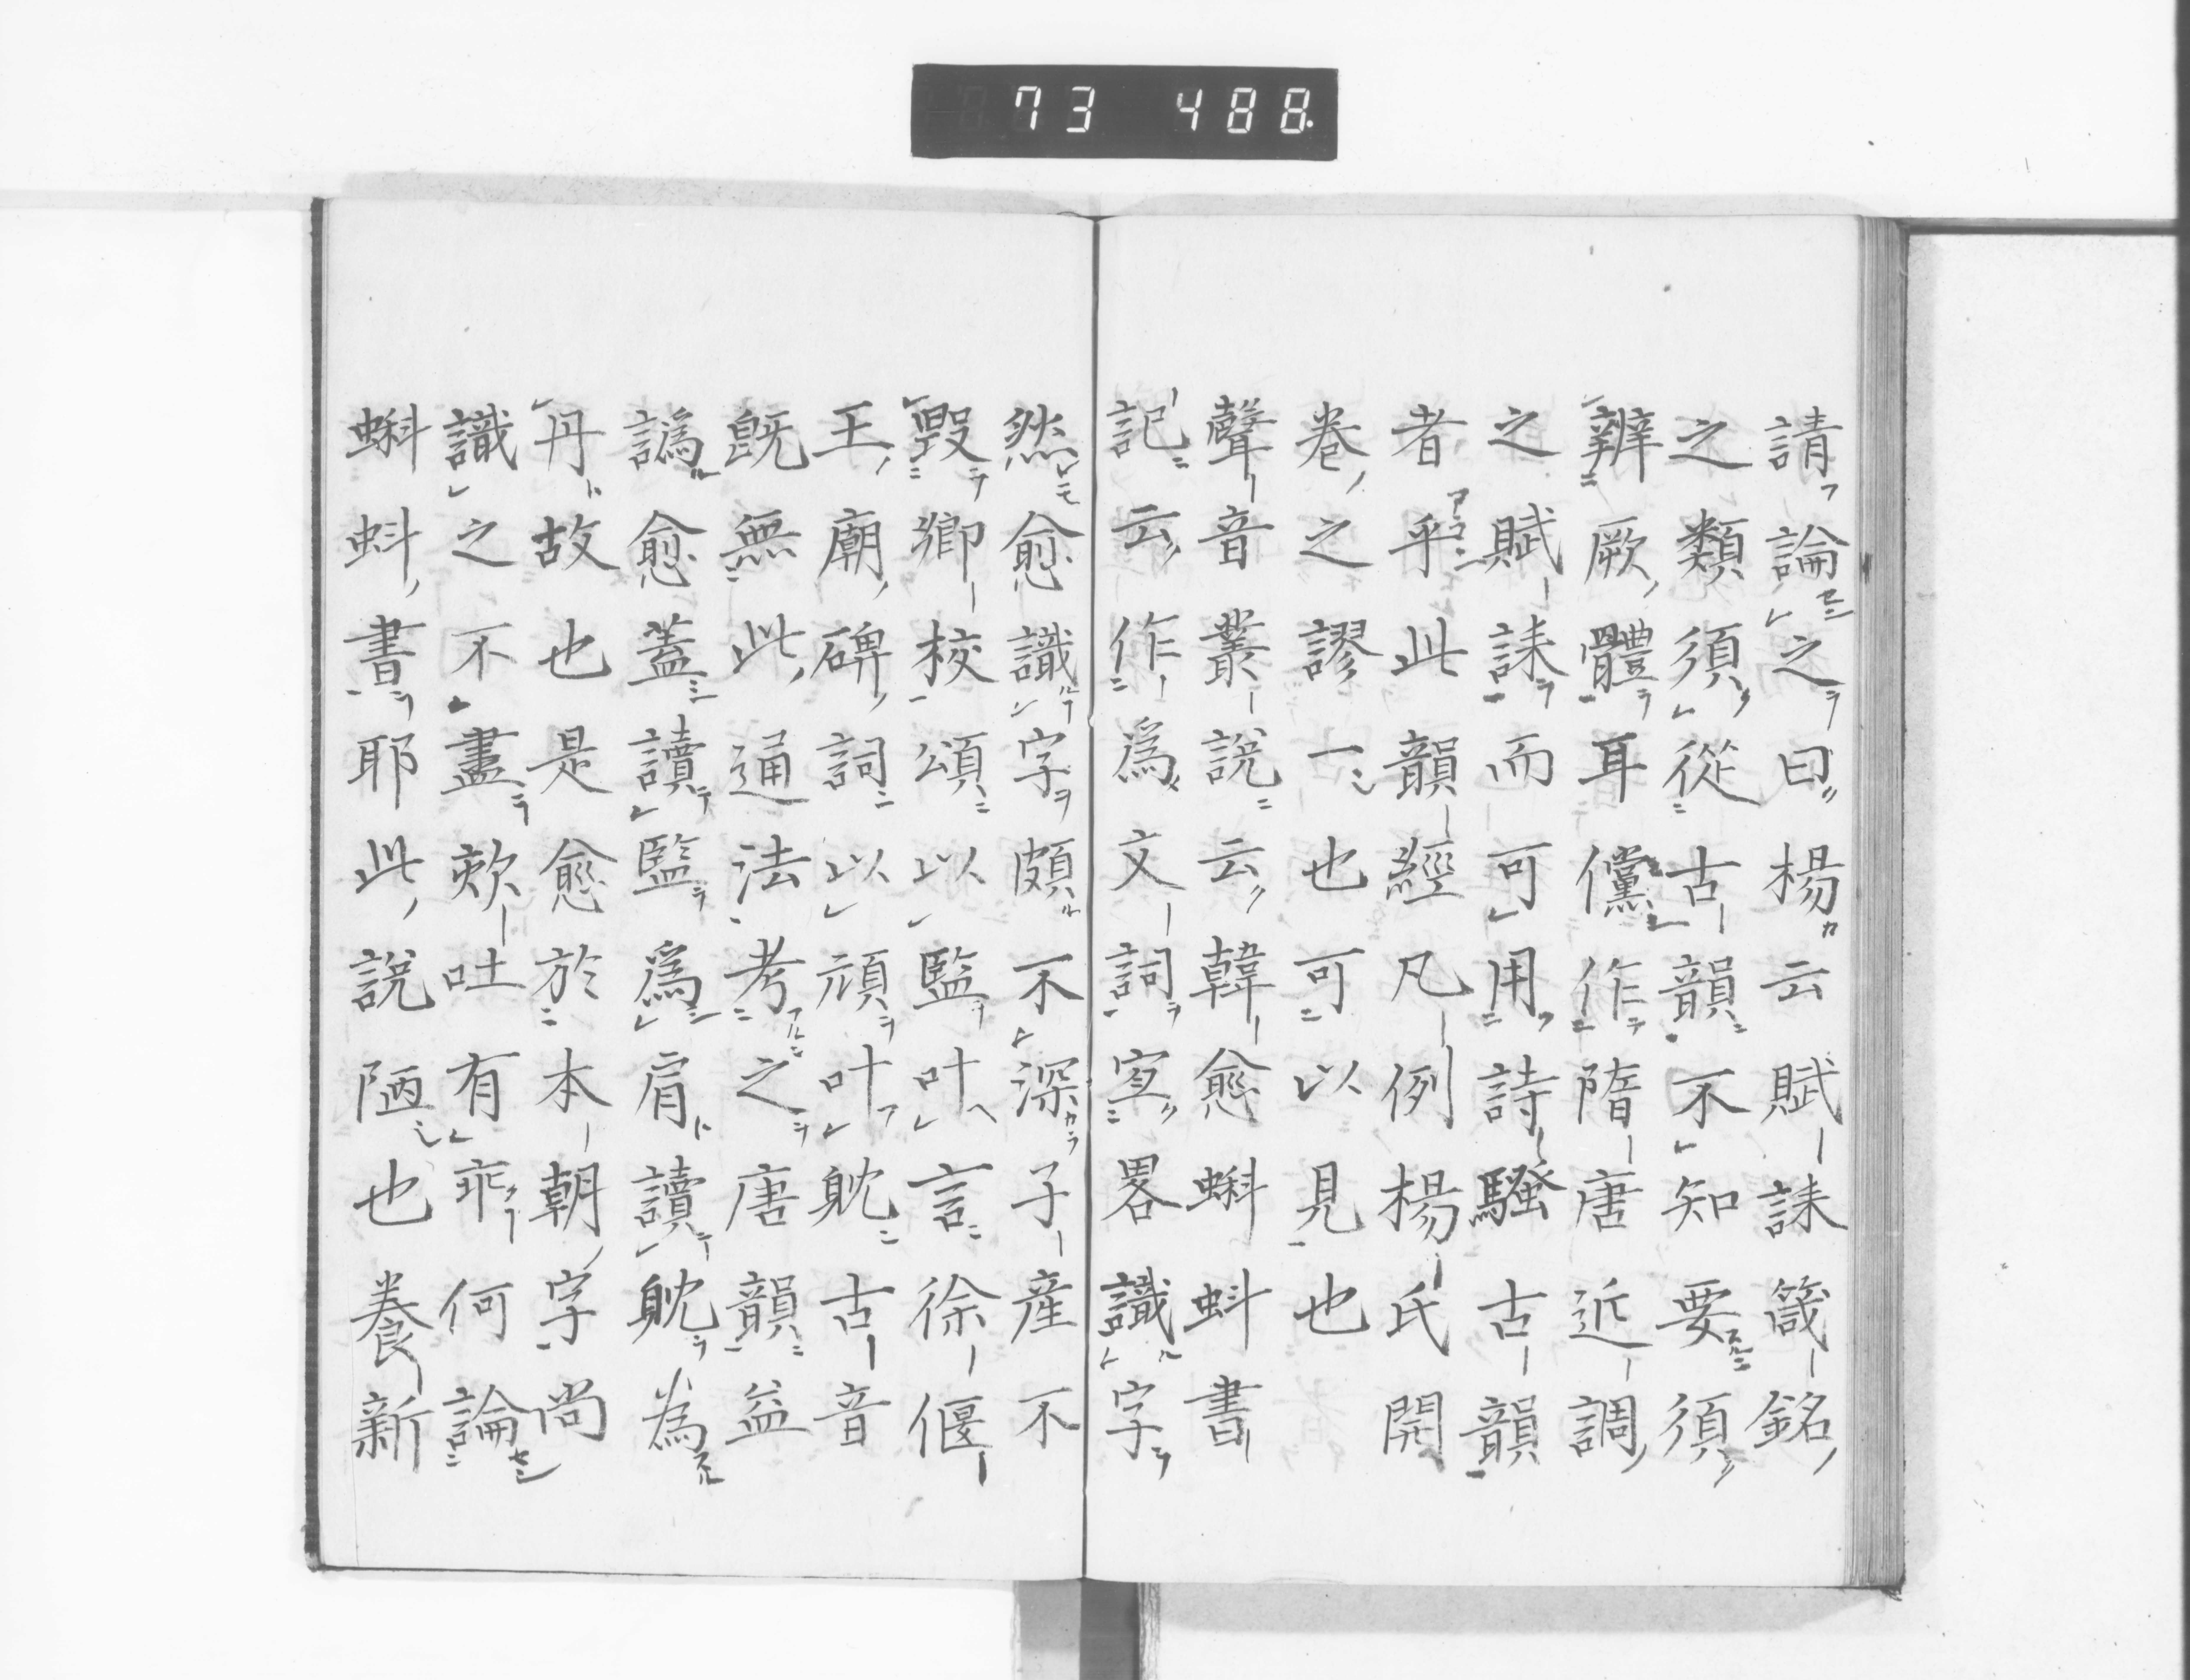 73 488
請論之曰楊云賦誄箴銘
之類須從古韻不知要須
辨厥體耳儻作隋唐近調
之賦誄而可用詩騷古韻
者乎此韻經凡例楊氏開
卷之謬一也可以見也
聲音叢說云韓愈蝌蚪書
記云作爲文詞寔畧識字
然愈識字頗不深子産不
毀鄉校頌以監叶言徐偃
王廟碑詞以頑叶躭古音
旣無此通法考之唐韻益
譌愈蓋讀監爲肩讀躭為
丹故也是愈於本朝字尚
識之不盡欸吐有乖何論
蝌蚪書耶此說陋也養新